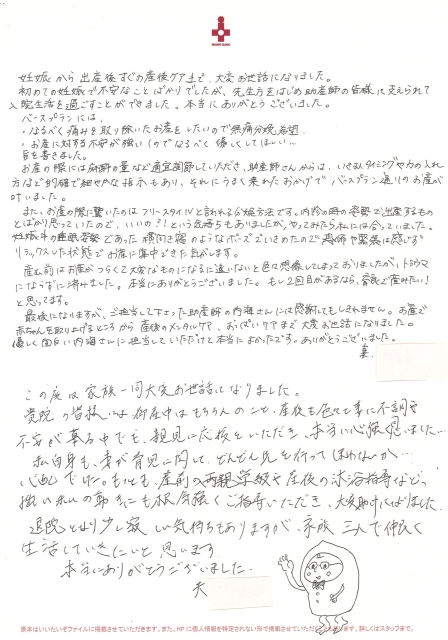 妊娠から出産後すぐの産後ケアまで、大変お世話になりました。
初めての妊娠で不安なことばかりでしたが、先生方をはじめ助産師の皆様に支えられて
入院生活を過ごすことができました。本当にありがとうございました。
バースプランには、
・なるべく痛みを取り除いたお産をしたいので無痛分娩希望
・お産に対する不安が強いのでなるべく優しくしてほしい…
旨を書きました。
お産の際には麻酔の量など適宜調節していただき、助産師さんからは、いきむタイミングや力の入れ
方など的確で細やかな指示もあり、それにうまく乗れたおかげでバースプラン通りのお産が
叶いました。
また、お産の際に驚いたのはフリースタイルと言われる分娩方法です。内診の時の姿勢で出産するもの
とばかり思っていたので、いいの?!という気持ちもありましたが、やってみたら私には合っていました。
妊娠中の睡眠姿勢であった横向き寝のようなポーズでいきめたので恐怖や緊張は感じず
リラックスした状態でお産に集中できた気がします。
産む前はお産がつらくて大変なものになるに違いないと色々想像してしまっておりましたが、トラウマ
にならずに済みました。本当にありがとうございました。もし2回目があるなら、貴院で産みたい!
と思ってます。
最後になりますが、ご担当して下さった助産師の内海さんには感謝してもしきれません。お産で
赤ちゃんを取り上げるところから産後のメンタルケア、おっぱいケアまで大変お世話になりました。
優しく面白い内海さんに担当していただけて本当によかったです。ありがとうございました。
妻
この度は家族一同大変お世話になりました。
貴院の皆様には
産後も色々と
不安が募る中でも、親身に応援をいただき、本当に心強く思いました…
私自身も、妻が育児に関して、どんどん先を行ってしまわないか…
心配でした。もっとも、産前の両親学級や産後の沐浴指導など、
拙い私の動きにも根気強くご指導いただき、大変助けになりました。
退院となり少し寂しい気持ちもありますが、家族三人で仲良く
生活していきたいと思います
本当にありがとうございました。
夫
原本はいいたいぞファイルに掲載させていただきます。また、HPに個人情報を特定されない形で掲載させていただくこともあります。詳しくはスタッフまで。